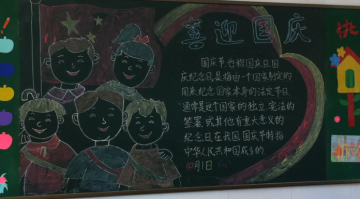 喜迎国庆
国庆节也称国庆日、国
庆纪念日是指由一个国家制定的
用来纪念国家本身的法定节日
通常是这个国家的独立、宪法的
签署或其他有重大意义的
纪念日在我国国庆节特指
中华人民共和国成立的
10月1日